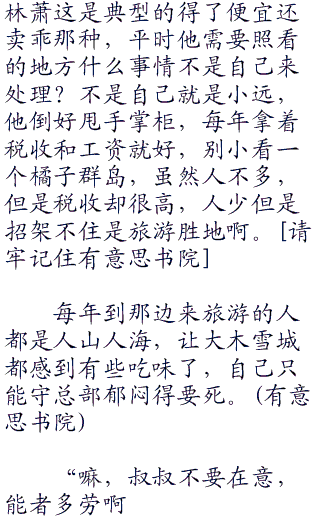 林萧这是典型的得了便宜还
卖乖那种，平时他需要照看
的地方什么事情不是自己来
处理？不是自己就是小远，
他倒好甩手掌柜，每年拿着
税收和工资就好，别小看一
个橘子群岛，虽然人不多，
但是税收却很高，人少但是
招架不住是旅游胜地啊。[请
牢记住有意思书院]
每年到那边来旅游的人
都是人山人海，让大木雪城
都感到有些吃味了，自己只
能守总部郁闷得要死。(有意
思书院)
“嘛，叔叔不要在意，
能者多劳啊